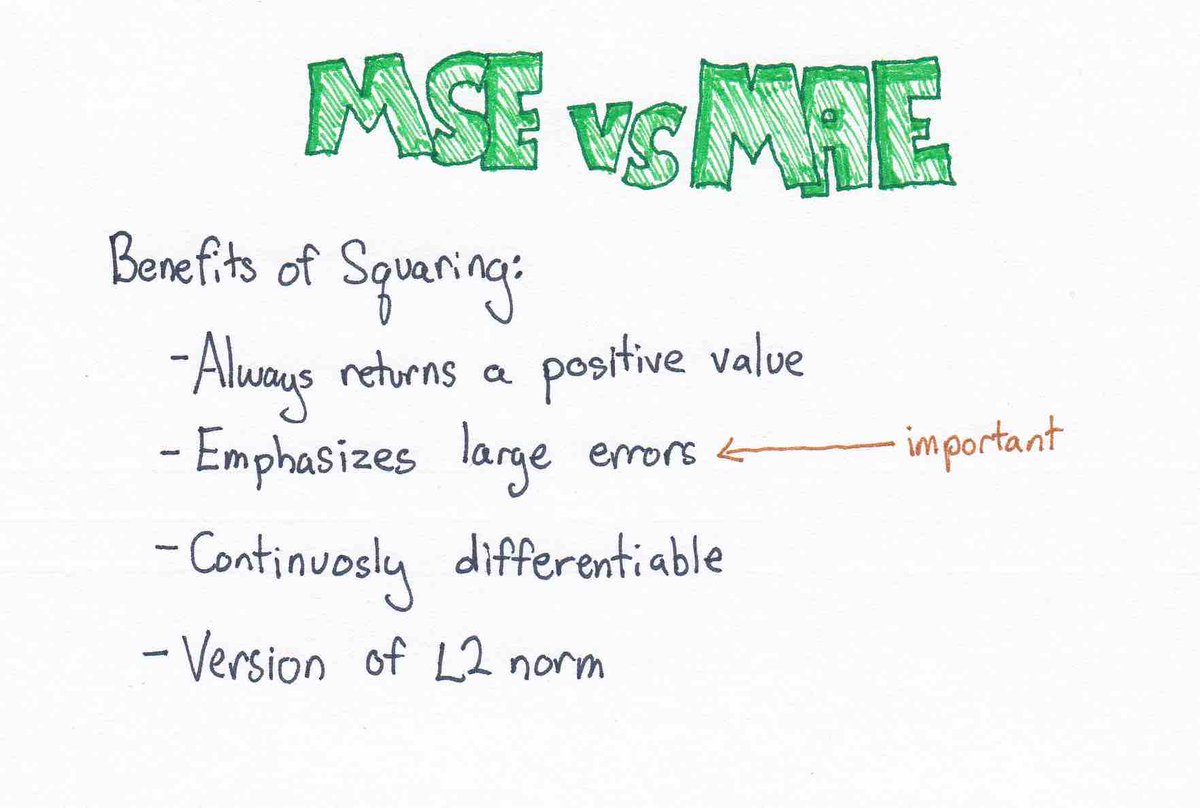 MSE vs MAE
Benefits of Squaring:
- Always returns a positive value
- Emphasizes large errors ← important
- Continuosly differentiable
- Version of L2 norm